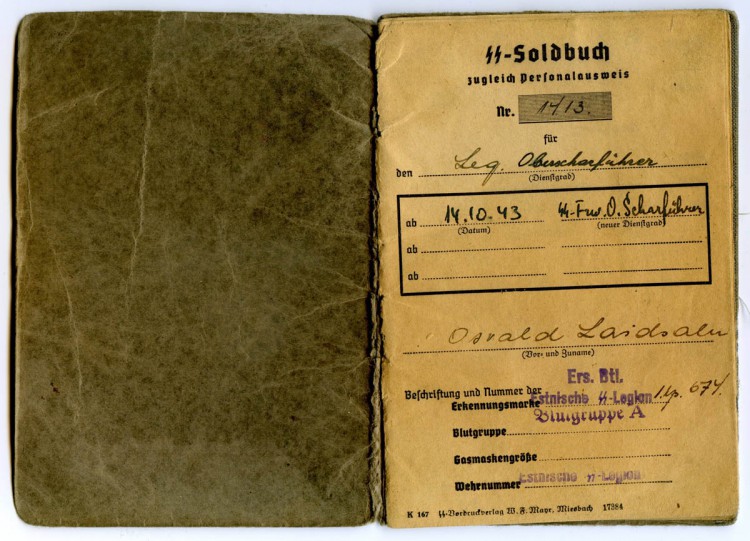 ᛋᛋ-Soldbuch
zugleich Personalausweis
Nr. 1413.
für
den Leg. Oberscharführer
(Dienstgrad)
ab 14.10.43 ᛋᛋ-Frw. O. Scharführer
(Datum) (neuer Dienstgrad)
ab
ab
Osvald Laidsalu
(Vor- und Zuname)
Ers. Btl.
Beschriftung und Nummer der
Erkennungsmarke Estnische ᛋᛋ-Legion 674.
Blutgruppe A
Blutgruppe
Gasmaskengröße
Wehrnummer Estnische ᛋᛋ-Legion
K 167 ᛋᛋ-Vordruckverlag W. F. Mayr, Miesbach 17384